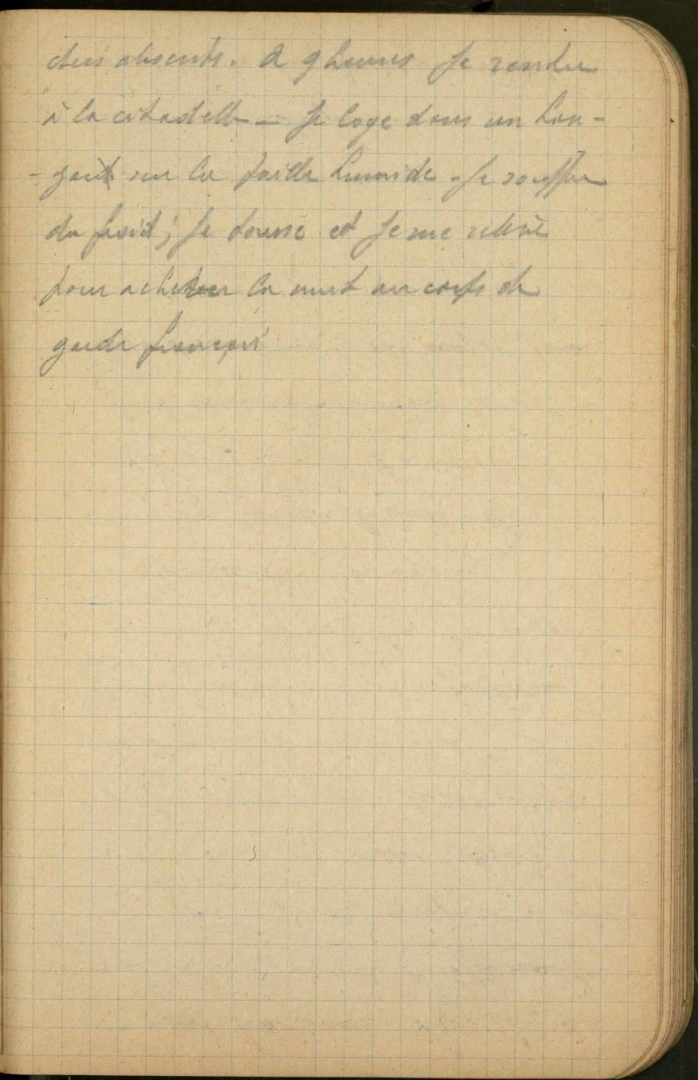 des absents. A 9 heures je rendu
à la citadelle — Je loge dans un han-
- gard sur la paille humide. Je souffre
du froid ; je tousse et je me relève
pour achever la nuit au corps de
garde français